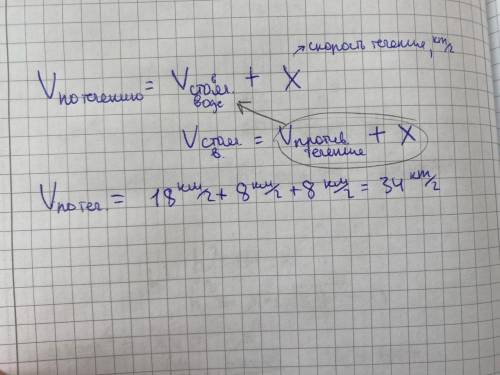 → скорость течения, км/г
V по течению = V в стояч. воде + X
V стоям. в. = V против течение + X
V по теч. = 18 км/г + 8 км/г + 8 км/г = 34 км/г